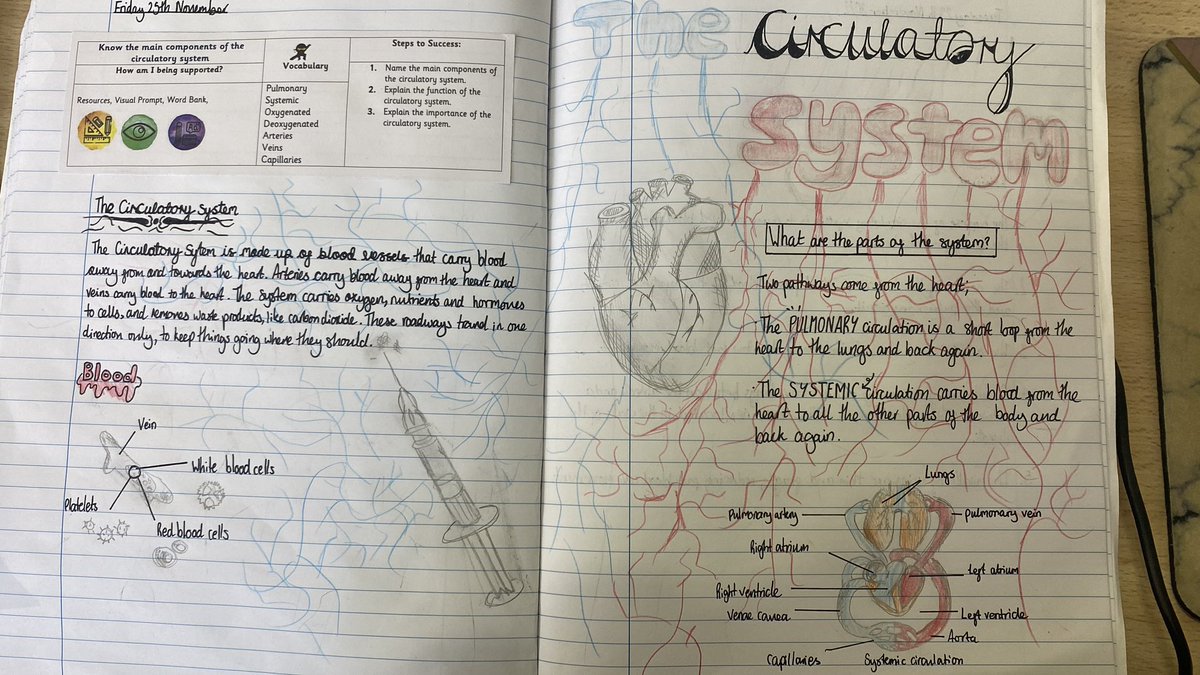 Friday 25th November
Know the main components of the
circulatory system
How am I being supported?
Resources, Visual Prompt, Word Bank,
Vocabulary
Pulmonary
Systemic
Oxygenated
Deoxygenated
Arteries
Veins
Capillaries
Steps to Success:
1. Name the main components of
the circulatory system.
2. Explain the function of the
circulatory system.
3. Explain the importance of the
circulatory system.
The Circulatory System
The Circulatory Sytem is made up of blood vessels that carry blood
away from and towards the heart. Arteries carry blood away from the heart and
veins carry blood to the heart. The system carries oxygen, nutrients and hormones
to cells, and removes waste products, like carbon dioxide. These roadways travel in one
direction only, to keep things going where they should.
Blood
Vein
White blood cells
Platelets
Red blood cells
The Circulatory
System
What are the parts of the system?
Two pathways come from the heart;
· The PULMONARY circulation is a short loop from the
heart to the lungs and back again.
· The SYSTEMIC circulation carries blood from the
heart to all the other parts of the body and
back again.
Lungs
Pulmonary artery
Pulmonary vein
Right atrium
Left atrium
Right ventricle
Venae cavea
Left ventricle
Aorta
Capillaries
Systemic circulation